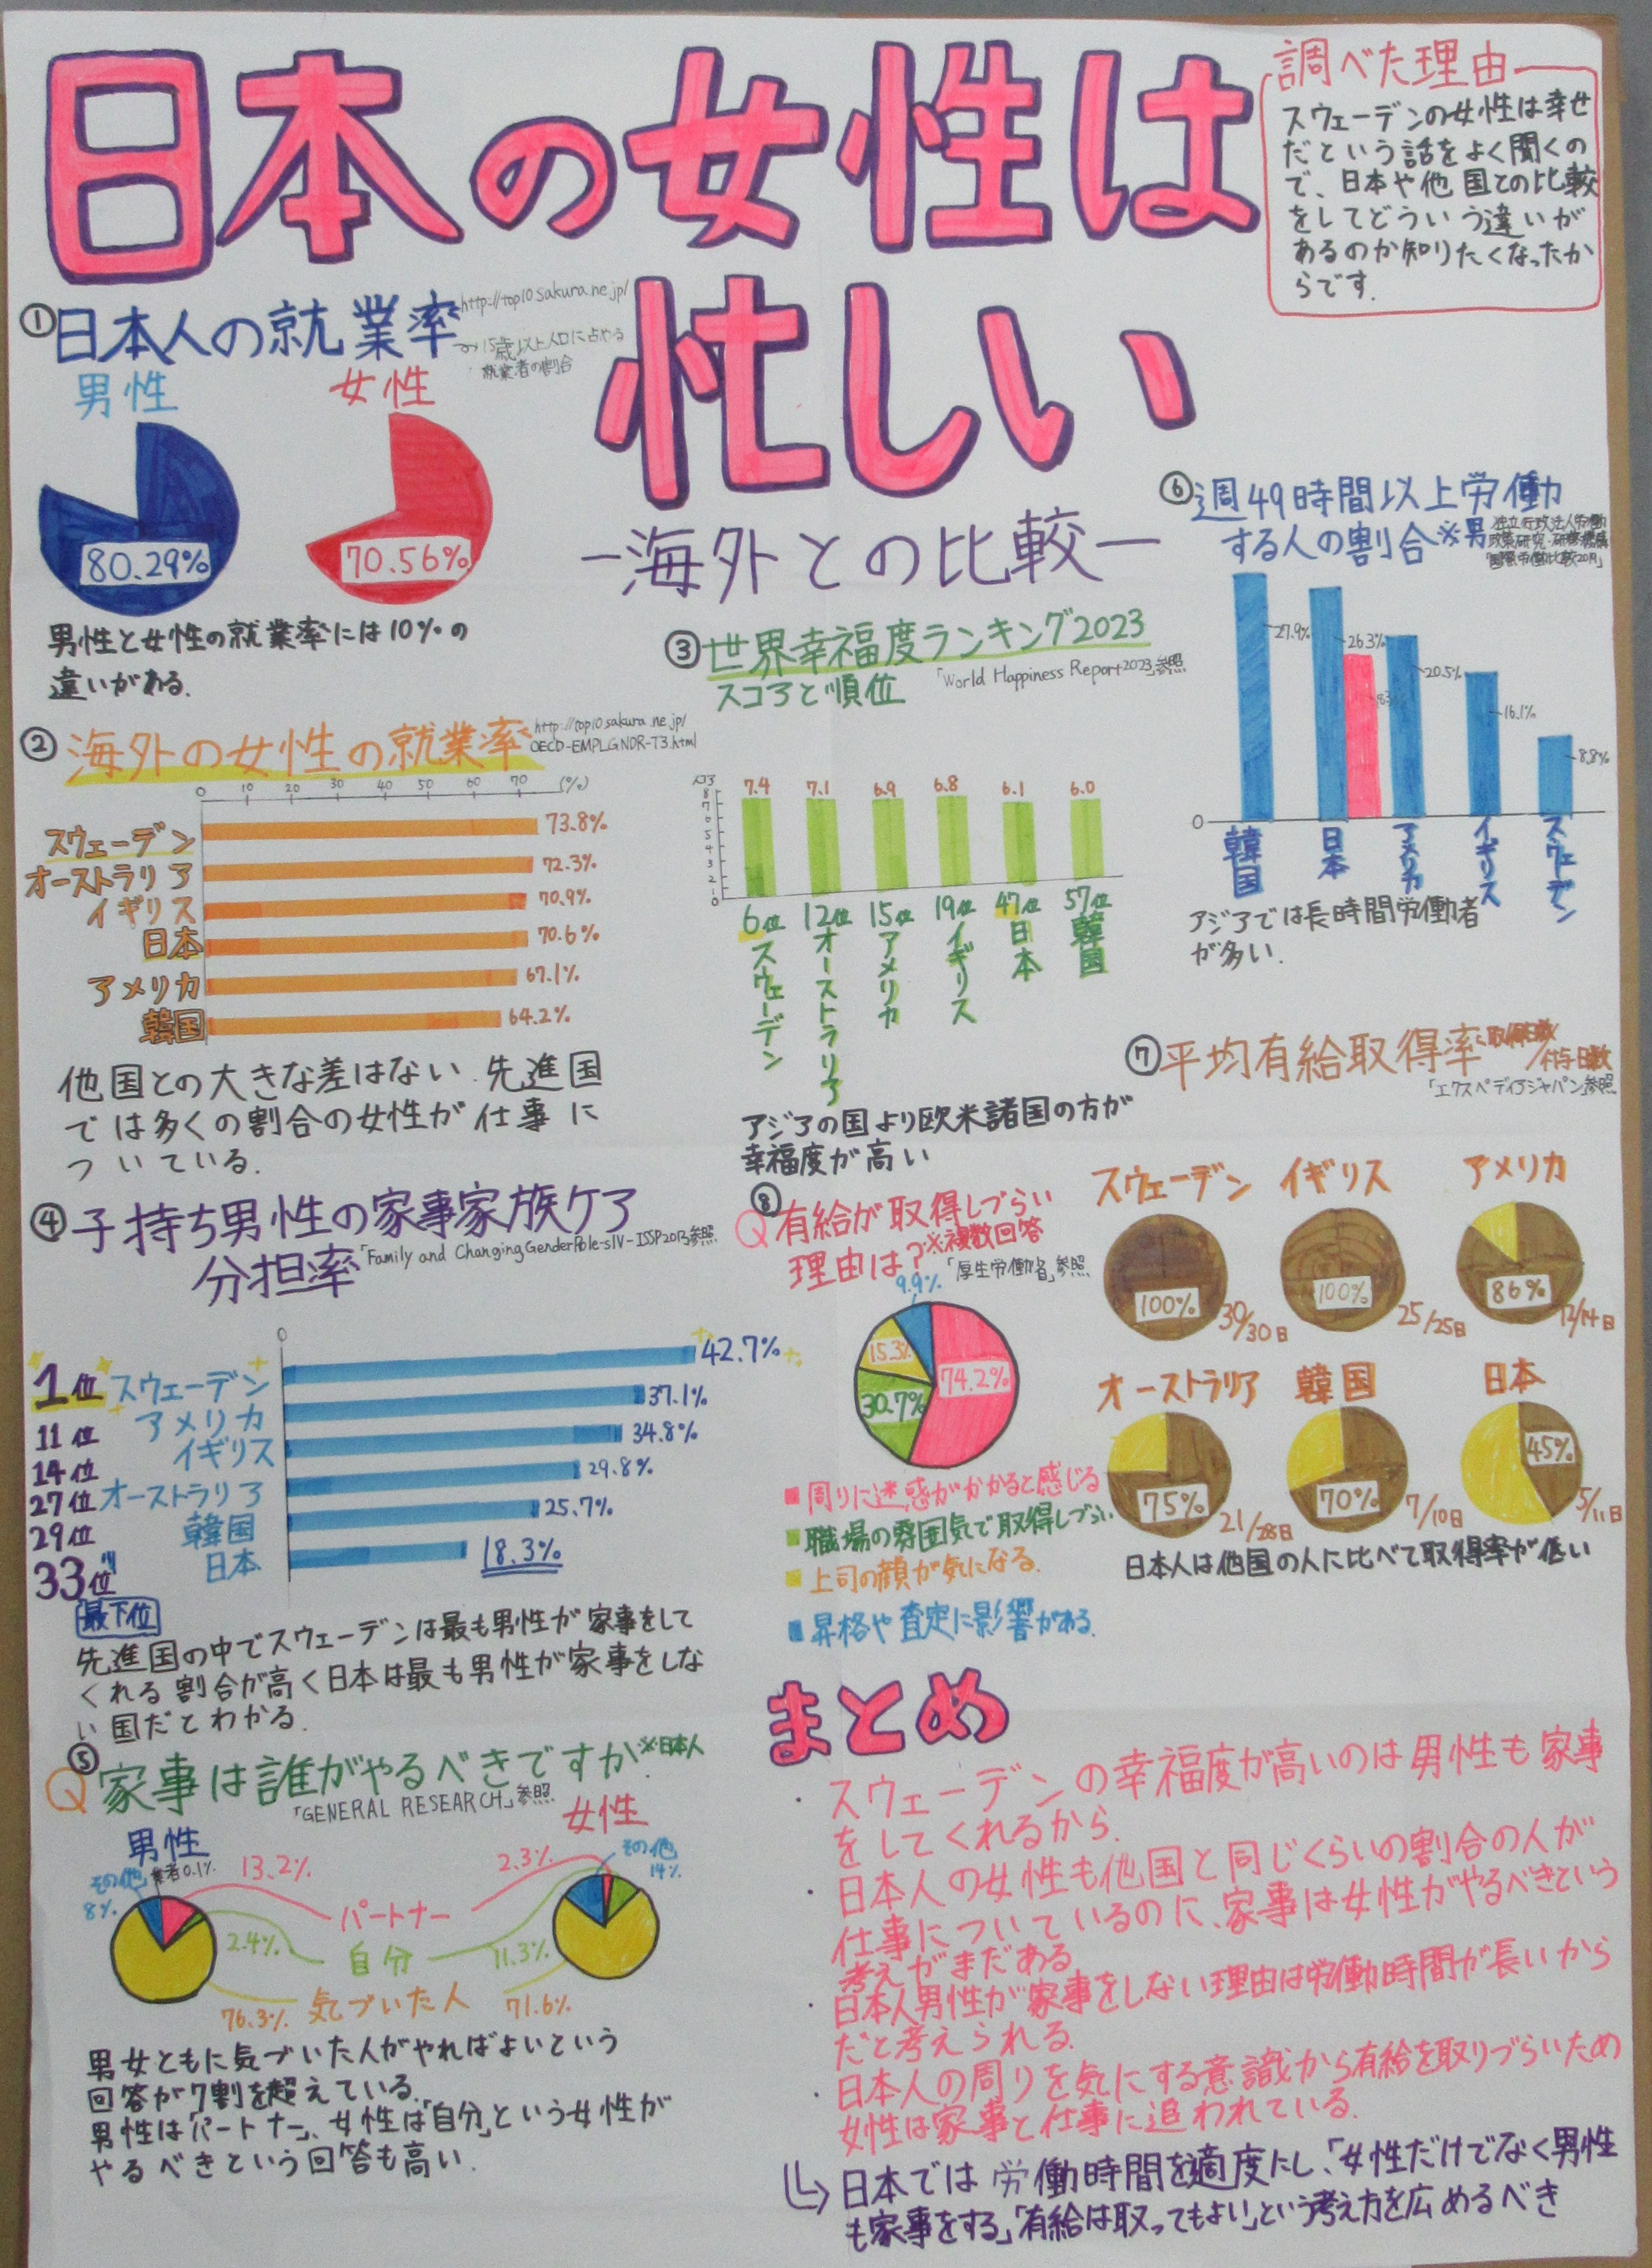 日本の女性は
忙しい
―海外との比較―
調べた理由
スウェーデンの女性は幸せ
だという話をよく聞くの
で、日本や他国との比較
をしてどういう違いが
あるのか知りたくなったか
らです.
①日本人の就業率
http://top10.sakura.ne.jp/
15歳以上人口に占める
就業者の割合
男性
女性
80.29%
70.56%
男性と女性の就業率には10%の
違いがある.
②海外の女性の就業率
http://top10.sakura.ne.jp/
OECD-EMPLGNDR-T3.html
0 10 20 30 40 50 60 70 (%)
スウェーデン 73.8%
オーストラリア 72.3%
イギリス 70.9%
日本 70.6%
アメリカ 67.1%
韓国 64.2%
他国との大きな差はない.先進国
では多くの割合の女性が仕事に
ついている.
③世界幸福度ランキング2023
スコアと順位
「World Happiness Report2023」参照
スコア
8
7
6
5
4
3
2
1
0
7.4 7.1 6.9 6.8 6.1 6.0
6位 12位 15位 19位 47位 57位
スウェーデン
オーストラリア
アメリカ
イギリス
日本
韓国
アジアの国より欧米諸国の方が
幸福度が高い
④子持ち男性の家事家族ケア
分担率
「Family and Changing GenderRole-sIV-ISSP2013参照
0
1位 スウェーデン 42.7%
11位 アメリカ 37.1%
14位 イギリス 34.8%
27位 オーストラリア 29.8%
29位 韓国 25.7%
33位 日本 18.3%
最下位
先進国の中でスウェーデンは最も男性が家事をして
くれる割合が高く日本は最も男性が家事をしな
い国だとわかる.
⑤
Q家事は誰がやるべきですか.※日本人
「GENERAL RESEARCH」参照
男性
女性
その他
8%
業者0.1%
13.2%
2.3%
その他
14%
パートナー
2.4%
自分
11.3%
76.3%
気づいた人
71.6%
男女ともに気づいた人がやればよいという
回答が7割を超えている.
男性は「パートナー」、女性は「自分」という女性が
やるべきという回答も高い.
⑥週49時間以上労働
する人の割合※男
独立行政法人労働
政策研究・研修機構
27.9%
26.3%
20.5%
16.1%
8.8%
0
韓国
日本
アメリカ
イギリス
スウェーデン
アジアでは長時間労働者
が多い.
⑦平均有給取得率
取得日数/付与日数
「エクスペディアジャパン」参照
スウェーデン
イギリス
アメリカ
100%
100%
86%
30/30日
25/25日
12/14日
オーストラリア
韓国
日本
75%
70%
45%
21/28日
7/10日
5/11日
日本人は他国の人に比べて取得率が低い
⑧
Q有給が取得しづらい
理由は?※複数回答
「厚生労働省」参照
9.9%
15.3%
30.7%
74.2%
周りに迷惑がかかると感じる
職場の雰囲気で取得しづらい
上司の顔が気になる.
昇格や査定に影響がある.
まとめ
・スウェーデンの幸福度が高いのは男性も家事
をしてくれるから.
・日本人の女性も他国と同じくらいの割合の人が
仕事についているのに、家事は女性がやるべきという
考えがまだある
・日本人男性が家事をしない理由は労働時間が長いから
だと考えられる.
・日本人の周りを気にする意識から有給を取りづらいため
女性は家事と仕事に追われている.
日本では労働時間を適度にし、「女性だけでなく男性
も家事をする」「有給は取ってもよい」という考え方を広めるべき